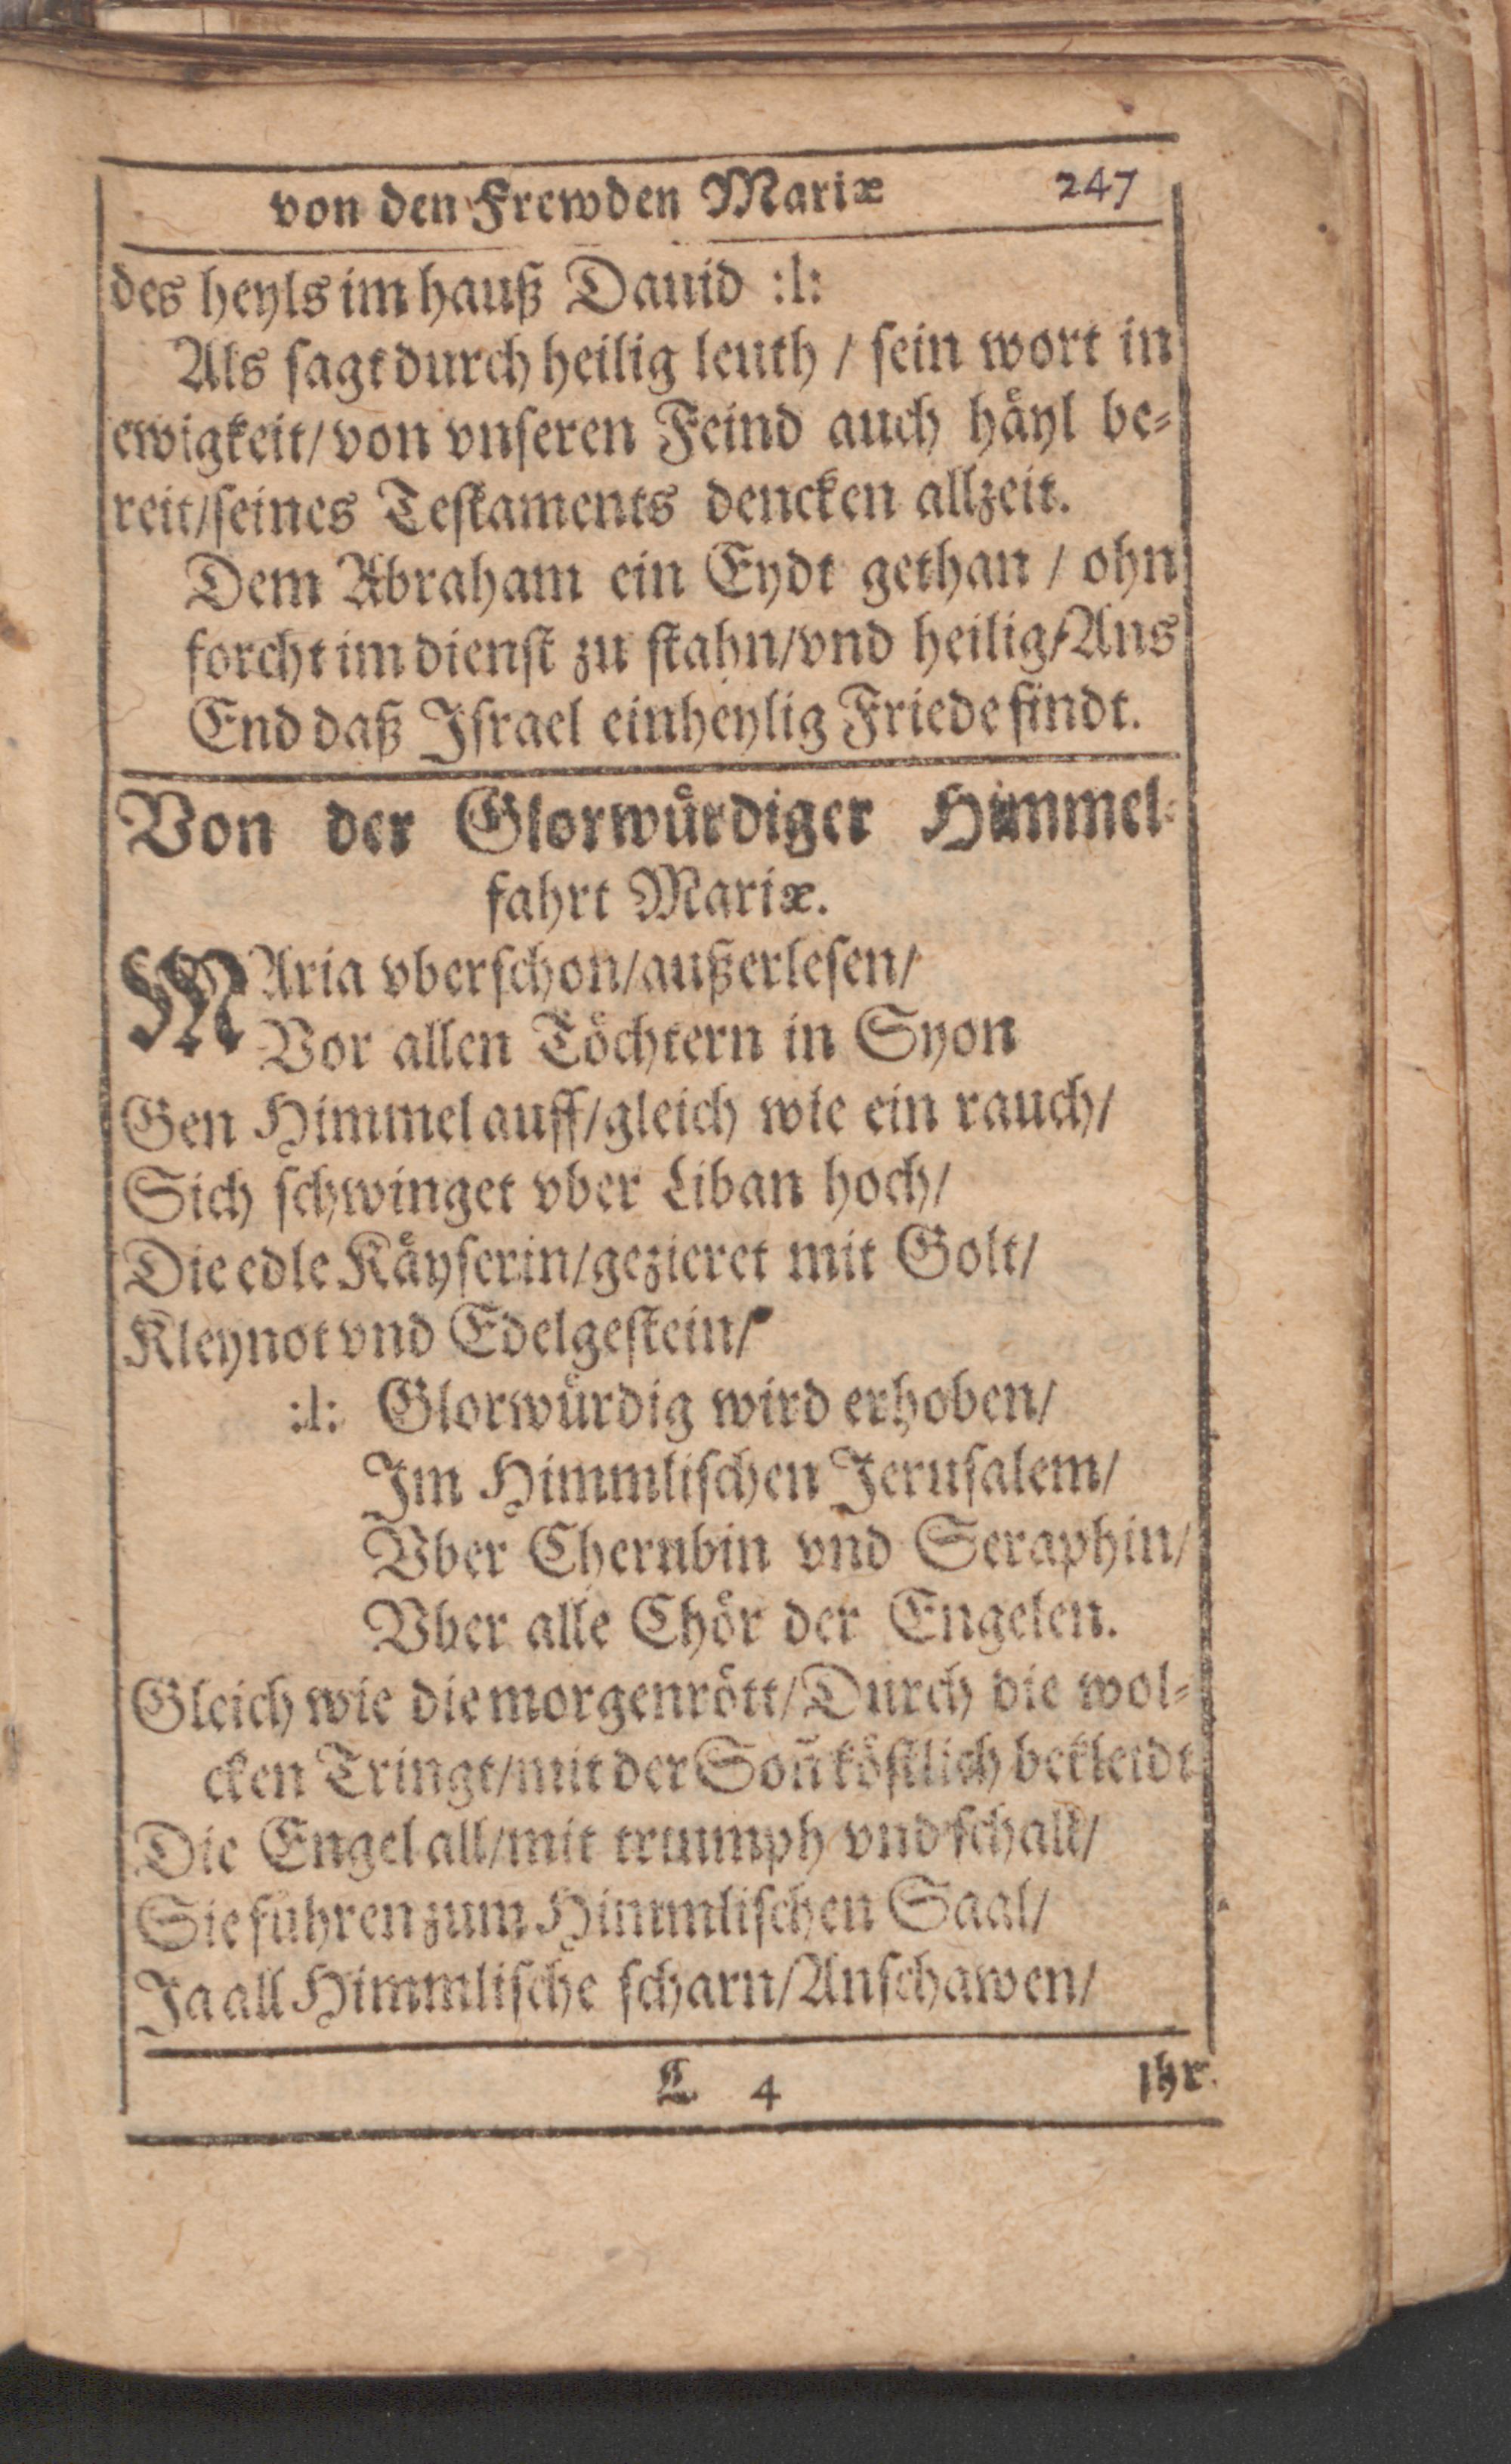 von den Frewden Mariæ 247
des heyls im hauß Dauid :|:
Als sagt durch heilig leuth / sein wort in
ewigkeit/ von vnseren Feind auch häyl be-
reit/seines Testaments dencken allzeit.
Dem Abraham ein Eydt gethan / ohn
forcht im dienst zu stahn/vnd heilig/Ans
End daß Israel einheylig Friede findt.
Von der Glorwürdiger Himmel-
fahrt Mariæ.
MAria vberschon/außerlesen/
Vor allen Töchtern in Syon
Gen Himmel auff/gleich wie ein rauch/
Sich schwinget vber Liban hoch/
Die edle Käyserin/gezieret mit Golt/
Kleynot vnd Edelgestein/
:|: Glorwürdig wird erhoben/
Im Himmlischen Jerusalem/
Vber Cherubin vnd Seraphin/
Vber alle Chör der Engelen.
Gleich wie die morgenrött/Durch die wol-
cken Tringt/mit der Soñ köstlich bekleidt
Die Engel all/mit triumph vnd schall/
Sie führen zum Himmlischen Saal/
Ja all Himmlische scharn/Anschawen/
L 4 Ihr